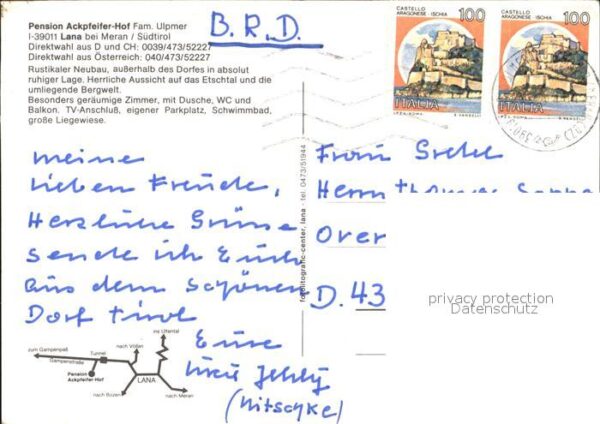 Pension Ackpfeifer-Hof Fam. Ulpmer
I-39011 Lana bei Meran / Südtirol
Direktwahl aus D und CH: 0039/473/52227
Direktwahl aus Österreich: 040/473/52227
Rustikaler Neubau, außerhalb des Dorfes in absolut
ruhiger Lage. Herrliche Aussicht auf das Etschtal und die
umliegende Bergwelt.
Besonders geräumige Zimmer, mit Dusche, WC und
Balkon. TV-Anschluß, eigener Parkplatz, Schwimmbad,
große Liegewiese.
B.R.D.
CASTELLO
ARAGONESE - ISCHIA
100
ITALIA
CASTELLO
ARAGONESE - ISCHIA
100
ITALIA
meine
lieben Freunde,
Herzliche Grüsse
sende ich Euch
aus dem schönen
Dorf Tirol
Eure
(Nitschke)
fotolitografic-center, lana - tel. 0473/51944
Frau
Herrn Thomas
Over
D. 43
privacy protection
Datenschutz
ins Ultental
zum Gampenpaß
Gampenstraße
Tunnel
nach Völlan
Pension
Ackpfeifer-Hof
LANA
nach Bozen
nach Meran